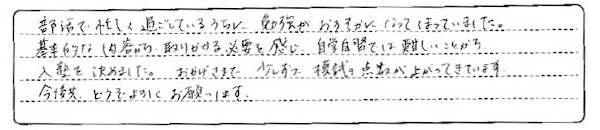 部活で忙しく過ごしているうちに、勉強がおろそかになってしまっていました。
基本的な内容から取りかかる必要を感じ、自学自習では難しいことから
入塾を決めました。おかげさまで少しずつ模試の点数が上がってきています。
今後共、どうぞよろしくお願いします。